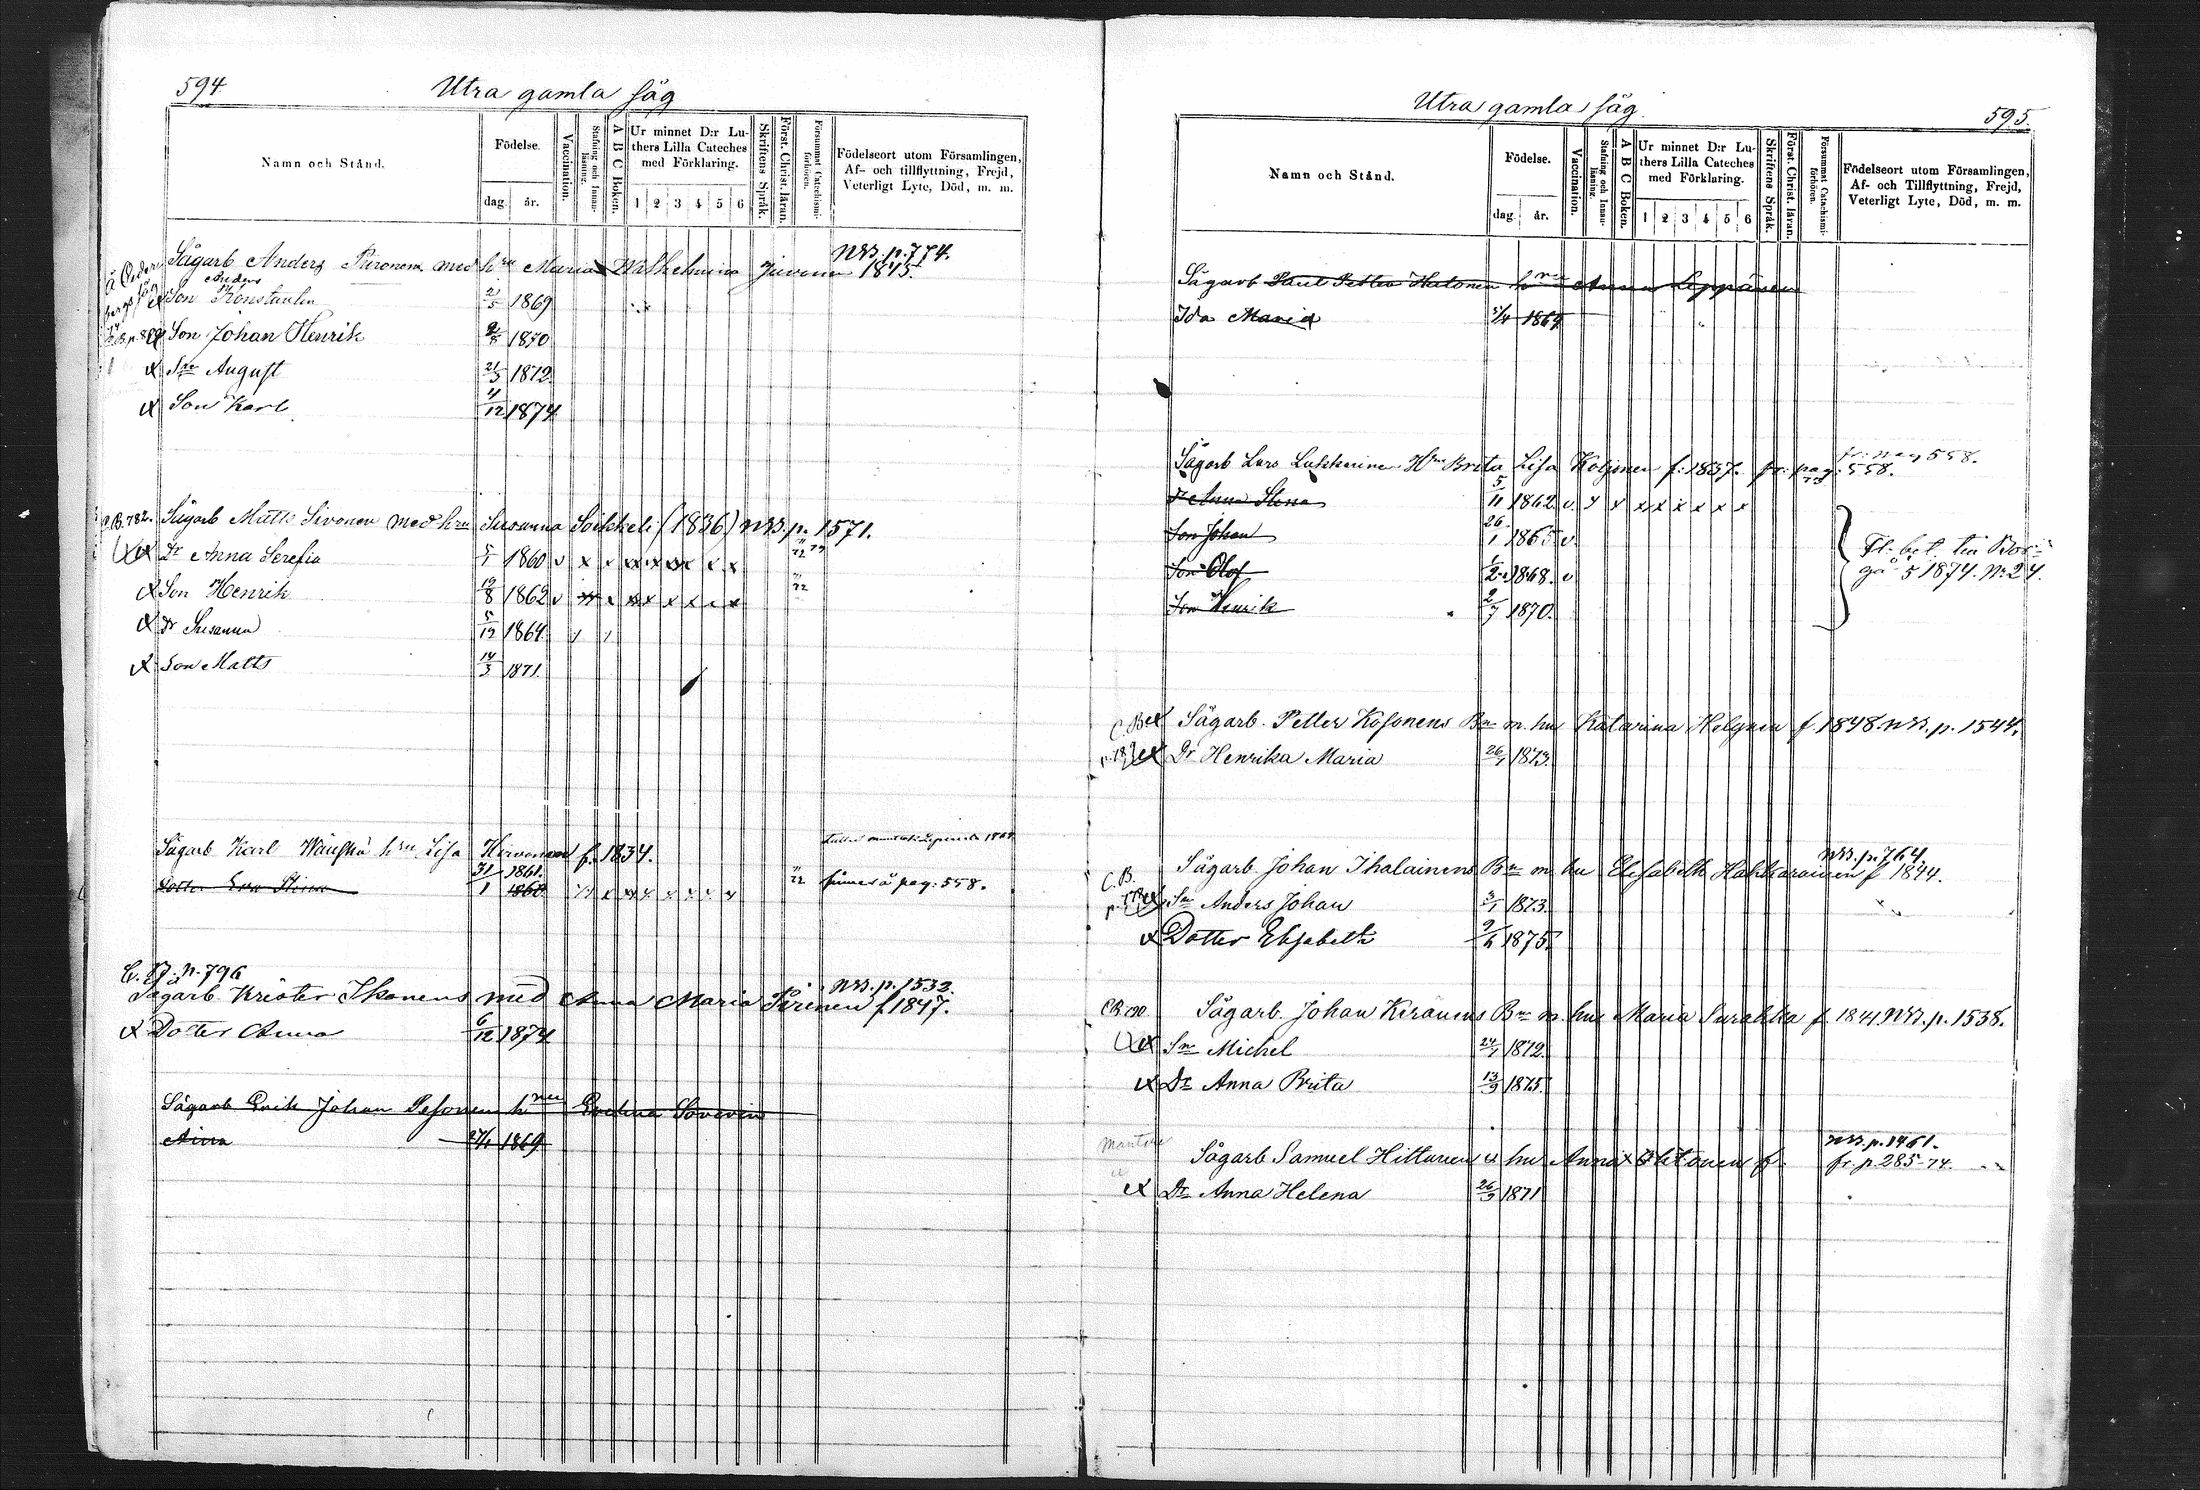 594
Utra gamla såg
Namn och Stånd.
Födelse.
dag. år.
Vaccination.
Stafning och Innanläsning.
A B C Boken.
Ur minnet D:r Luthers Lilla Cateches med Förklaring.
1 2 3 4 5 6
Skriftens Språk.
Först. Christ. läran.
Försummat Catechismiförhören.
Födelseort utom Församlingen, Af- och tillflyttning, Frejd, Veterligt Lyte, Död, m. m.
NB. p. 774.
Sågarb Anders Piironen med hru Maria Wilhelmina Juvonen 1845
Anders
Son Konstantin 2/5 1869
Son Johan Henrik 1870
Sn August 21/3 1872
Son Karl 4/12 1874
C.B. 782. Sågarb Matts Sivonen med hru Susanna Soikkeli (1836) NB. p. 1571.
Dr Anna Serefia 5/1 1860 v x
Son Henrik 19/8 1862 v
Dr Susanna 5/12 1864
Son Matts 14/3 1871
Sågarb Karl hru Lisa Hirvonen f. 1834.
31/1 1861.
Dotter Eva Stina 1860 finnes å pag: 558.
C. B. p. 796
Sågarb Krister Ikonens med Anna Maria Piirinen f 1847. NB. p. 1532.
Dotter Anna 6/12 1874
Sågarb Erik Johan Pesonen hru
Aina 27/1 1869
Utra gamla såg.
595.
Namn och Stånd.
Födelse.
dag. år.
Vaccination.
Stafning och Innanläsning.
A B C Boken.
Ur minnet D:r Luthers Lilla Cateches med Förklaring.
1 2 3 4 5 6
Skriftens Språk.
Först. Christ. läran.
Försummat Catachismiförhören.
Födelseort utom Församlingen, Af- och Tillflyttning, Frejd, Veterligt Lyte, Död, m. m.
Sågarb Petter Hutonen hru Anna Leppänen
Ida Maria 1869
fr. pag 558.
Sågarb Lars Lukkarinen Hru Brita Lisa Koljonen f. 1837. fr. pag. 558.
Dr Anna Stina 5/11 1862 v
Son Johan 26/1 1865 v.
Son Olof 1868. v
Son Henrik 2/7 1870.
Fl. bet. till Borgå 5 1874. Nr 24.
Sågarb. Petter Kosonens Bn m. hu Katarina Holopain f. 1848. NB. p. 1544.
Dr Henrika Maria 26/1 1873.
NB. p. 764.
C.B. Sågarb. Johan Ihalainens Bn m hu Elisabeth Hakkarainen f 1844.
Sn Anders Johan 3/1 1873.
Dotter Elisabeth 9/6 1875.
Sågarb. Johan Kiränens Bn m. hu Maria Surakka f. 1841. NB. p. 1538.
Sn Michel 24/1 1872.
Dr Anna Brita 13/9 1875
NB. p. 1461.
Sågarb Samuel Hiltunen hu Anna f. fr. p. 285-74.
Dr Anna Helena 26/9 1871